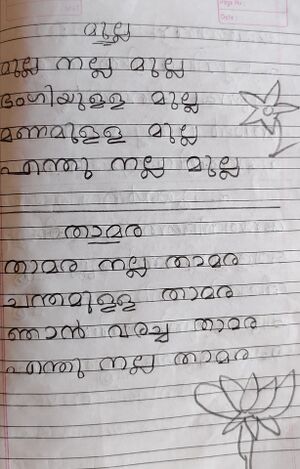 മുല്ല
മുല്ല നല്ല മുല്ല
ഭംഗിയുള്ള മുല്ല
മണമുള്ള മുല്ല
എന്തു നല്ല മുല്ല
താമര
താമര നല്ല താമര
ചന്തമുള്ള താമര
ഞാൻ വരച്ച താമര
എന്തു നല്ല താമര